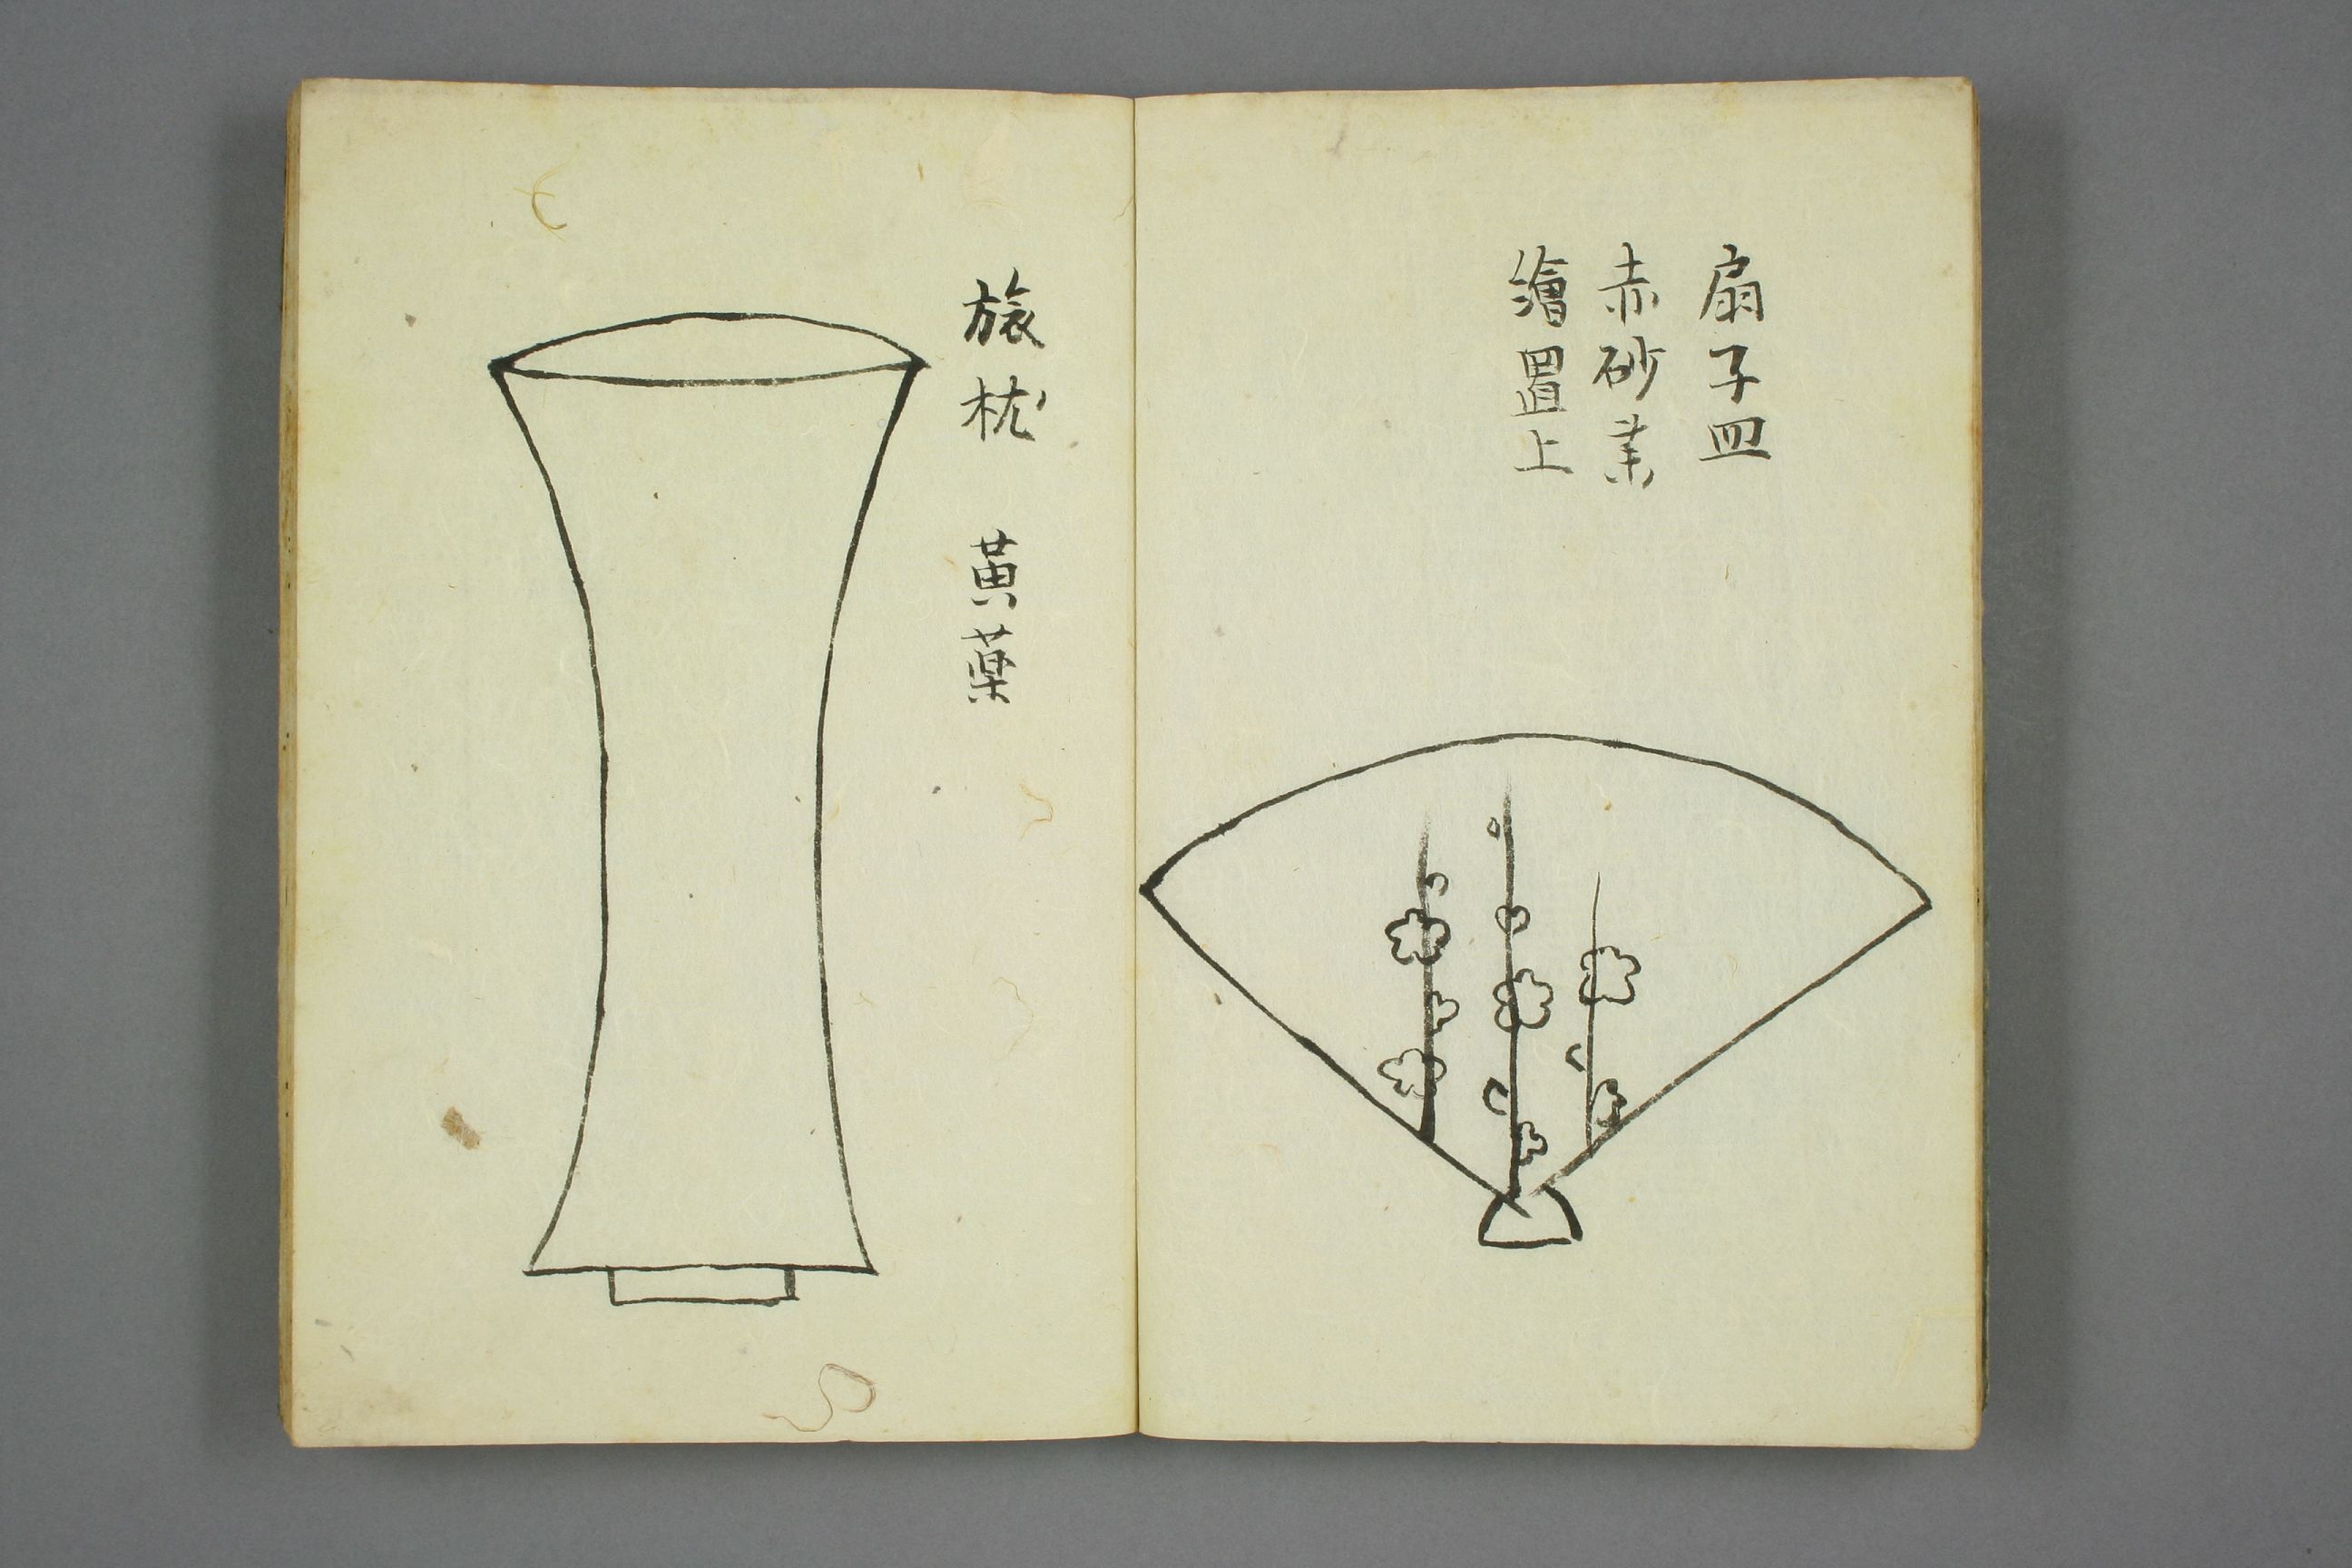 扇子皿
赤砂業
繪置上
旅枕　黄薬